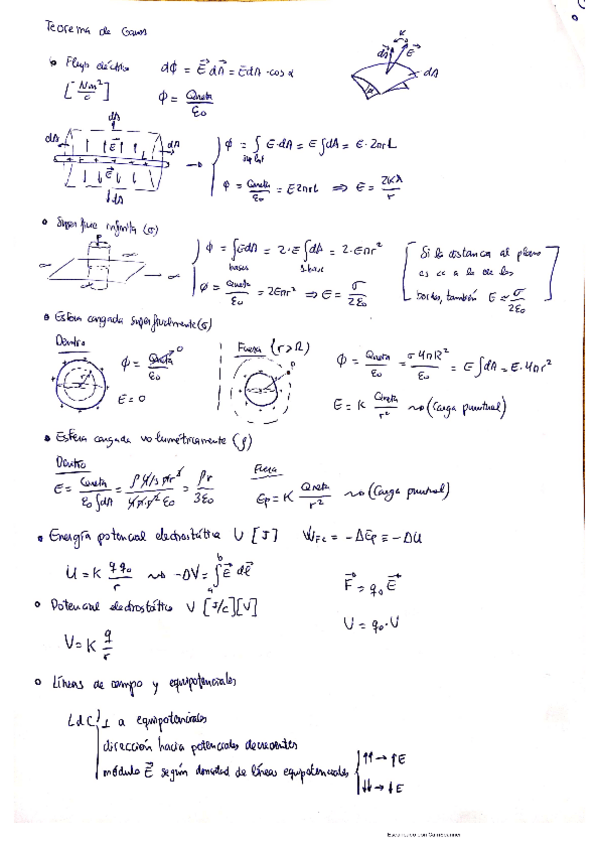 Teorema de Gauss
Flujo eléctrico dΦ = E⃗ dA⃗ = E dA · cos α
[Nm²/C] Φ = Qneta/ε₀
dA⃗ E⃗ dA
dA dA dA E⃗ E⃗ dA
Φ = ∫ E·dA = E∫dA = E·2πrL
Φ = Qneta/ε₀ = E2πrL ⇒ E = 2Kλ/r
Superficie infinita (σ)
Φ = ∫EdA = 2·E∫dA = 2·Eπr²
bases 1 base
Φ = Qneta/ε₀ = 2Eπr² ⇒ E = σ/2ε₀
[Si la distancia al plano
es << a la de los
bordes, también E ≈ σ/2ε₀]
Esfera cargada superficialmente (σ)
Dentro
Φ = Qneta/ε₀ 0
E = 0
Fuera (r>R)
Φ = Qneta/ε₀ = σ4πR²/ε₀ = E∫dA = E·4πr²
E = K Qneta/r² ~> (Carga puntual)
Esfera cargada volumétricamente (ρ)
Dentro
E = Qneta/ε₀∫dA = ρ 4/3 πr³/4·π·r² ε₀ = ρr/3ε₀
Fuera
Ep = K Qneta/r² ~> (Carga puntual)
Energía potencial electrostática U [J] W_Fc = -ΔEp ≡ -ΔU
U = K q q₀/r ~> -ΔV = ∫ₐᵇ E⃗ dl⃗
F⃗ = q₀E⃗
Potencial electrostático V [J/C][V]
U = q₀·V
V = K q/r
Líneas de campo y equipotenciales
LdC ⊥ a equipotenciales
dirección hacia potenciales decrecientes
módulo E⃗ según densidad de líneas equipotenciales
↑↑ → ↑E
↓↓ → ↓E
Escaneado con CamScanner